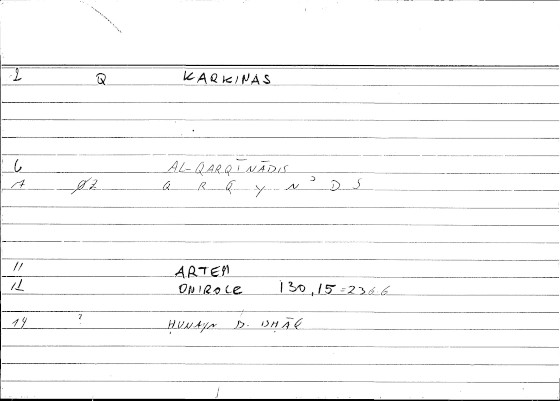 2 Q KARKINAS
6 AL-QARQĪNĀDIS
7 Ø2 Q R Q Y N ʾ D S
11 ARTEM
12 ONIROCR 130,15=2366
14 ? ḤUNAYN B. ISḤĀQ